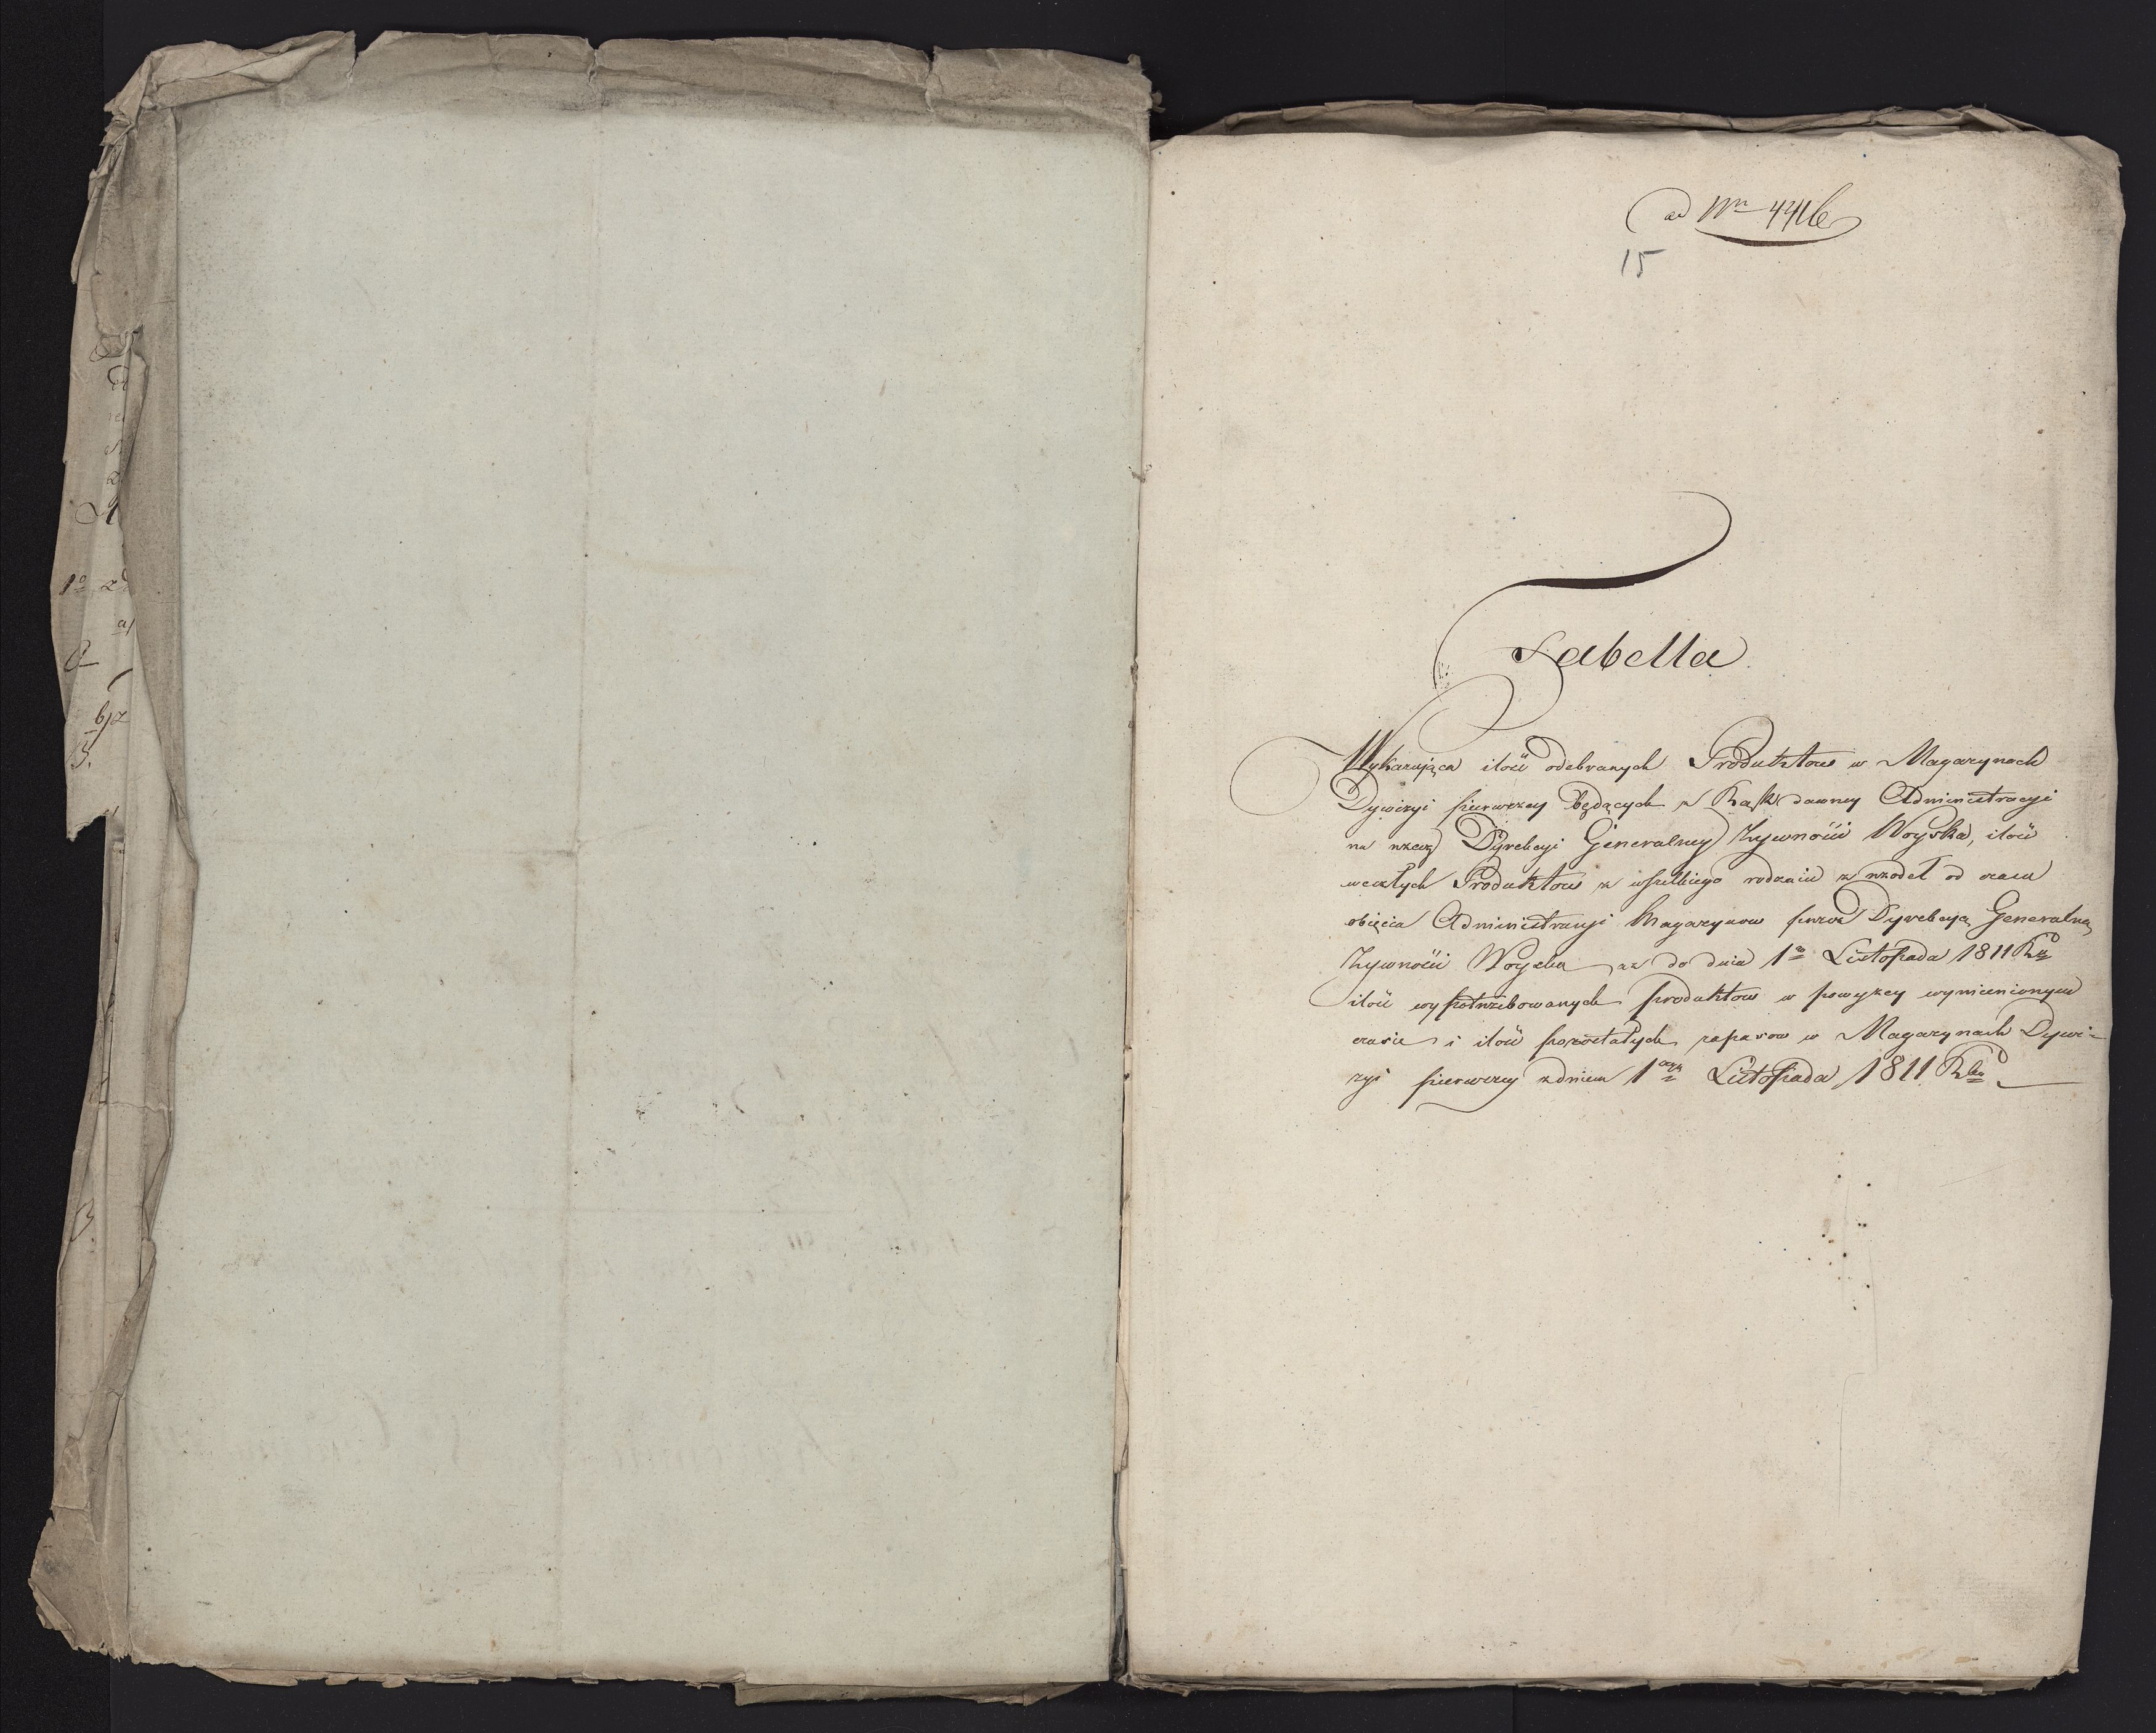 ad Nrn 4416
15
Tabella
Wykazująca ilość odebranych Produktow w Magazynach
Dywizyi pierwszey będących z Rąk dawney Administracyi
na rzecz Dyrekcyi Generalney Żywności Woyska, ilość
weszłych Produktow z wszelkiego rodzaiu zrzodeł od czasu
obięcia Administracyi Magazynow przez Dyrekcyą Generalną
Żywności Woyska aż do dnia 1go Listopada 1811 Rku
ilość wypotrzebowanych produktow w powyżey wymienionym
czasie i ilość pozostałych zapasow w Magazynach Dywi-
zyi pierwszey z dniem 1 Listopada 1811 Rku